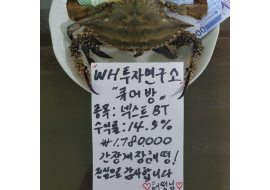 WH투자연구소
"큐어방"
종목: 넥스트BT
수익률: 14.5%
₩1,780,000
간장게장해떵!
진심으로 감사합니다